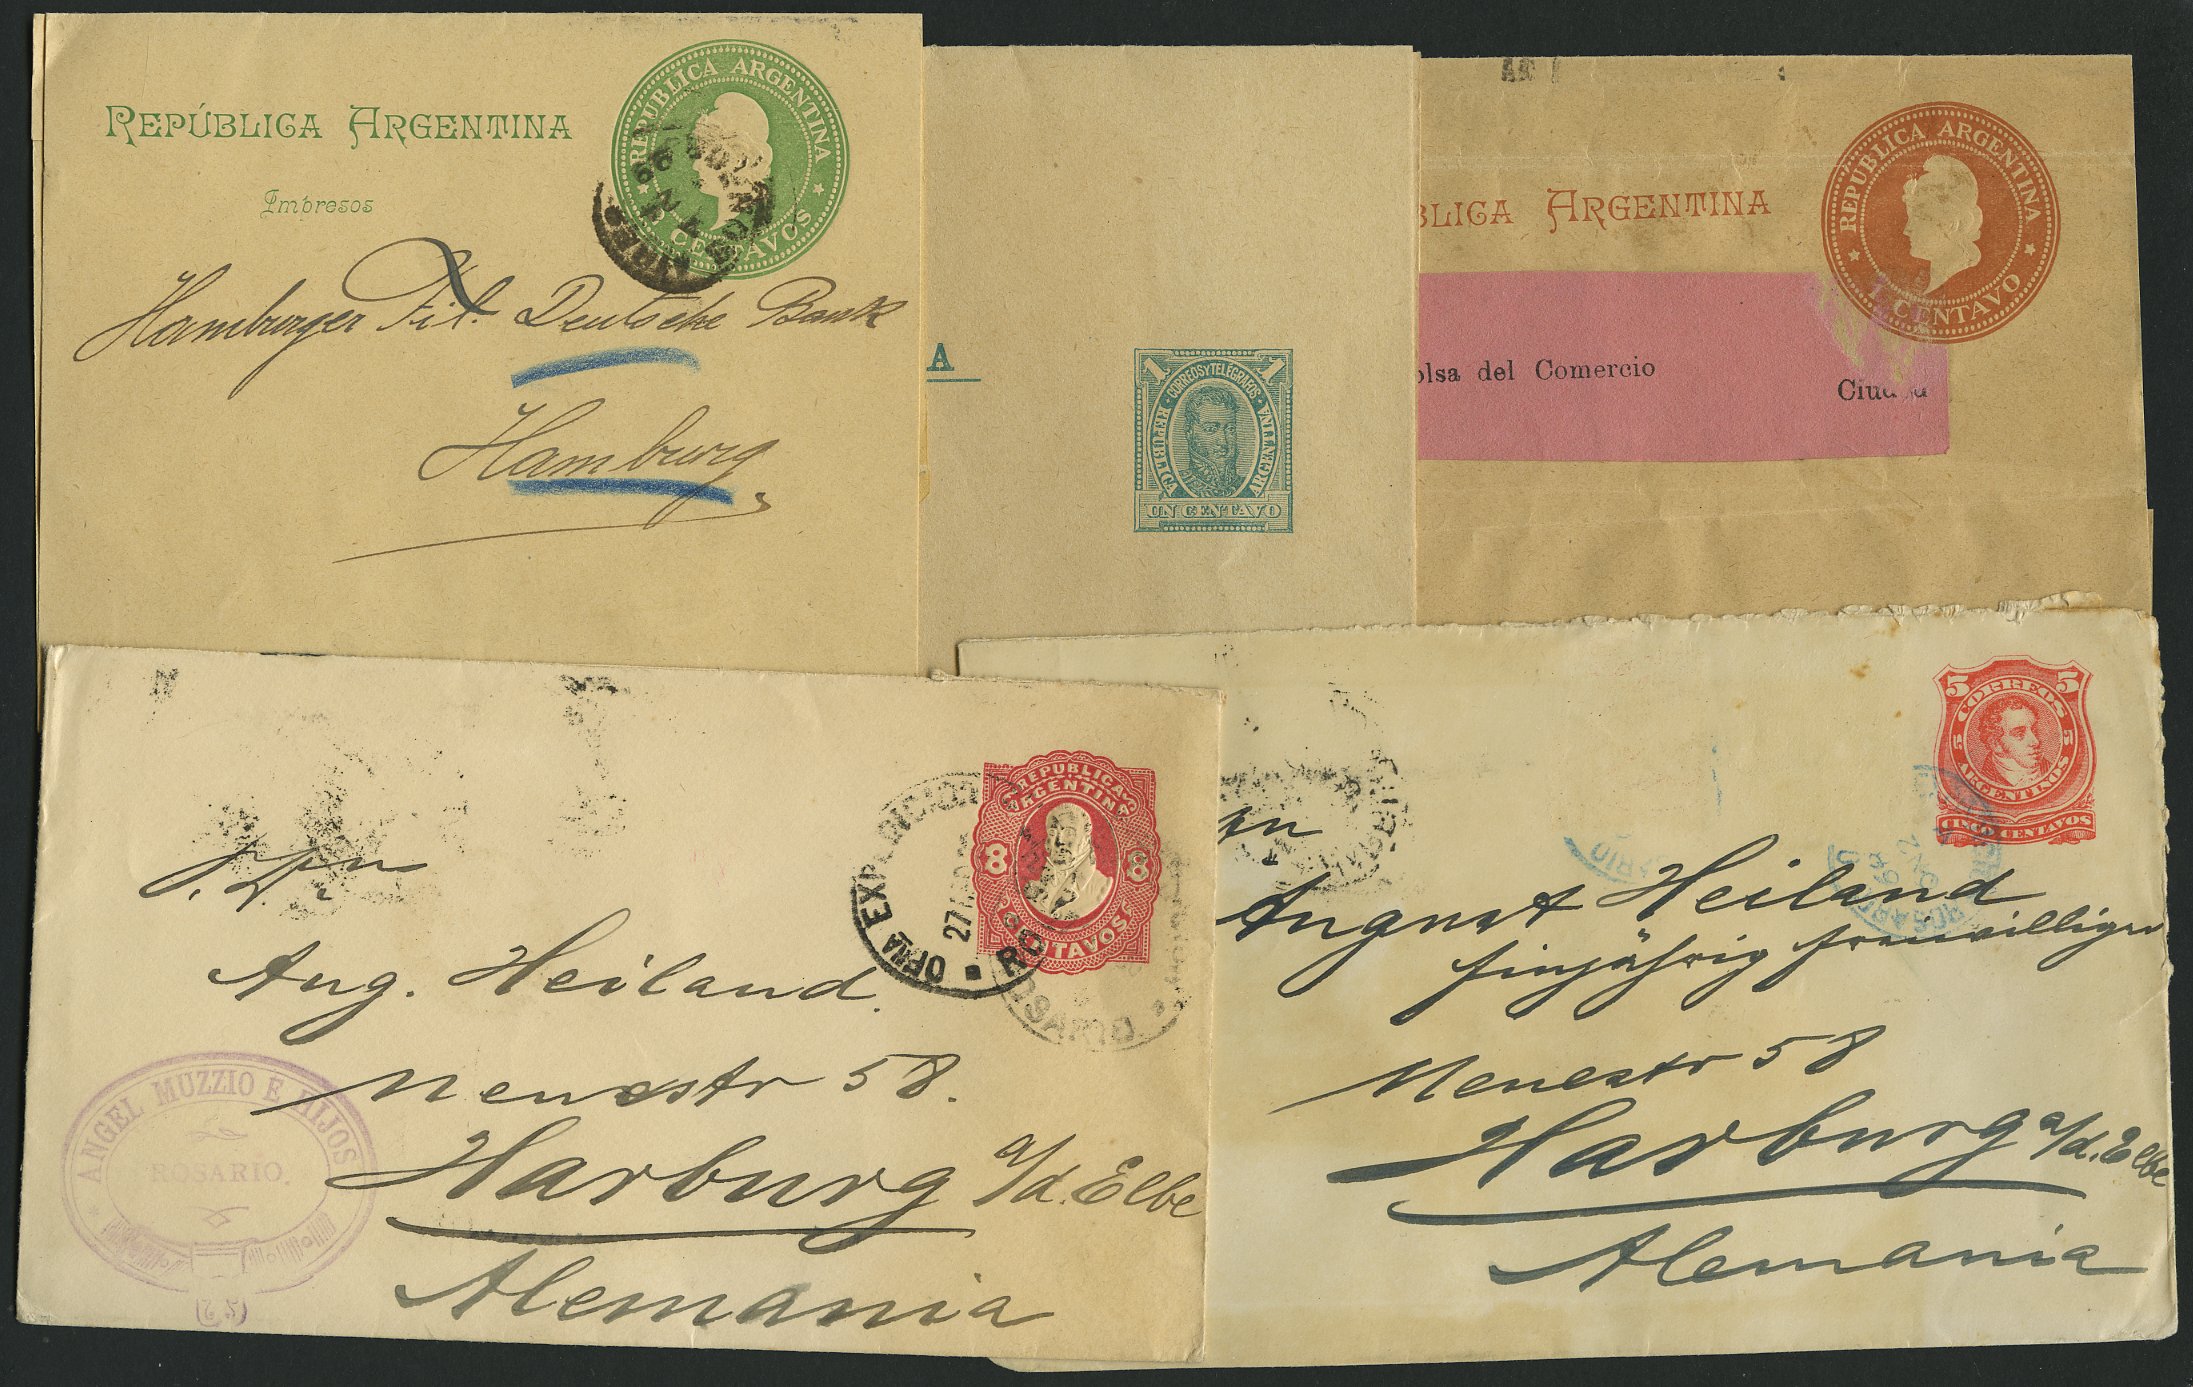 REPÚBLICA ARGENTINA
Impresos
REPUBLICA ARGENTINA
CENTAVOS
Hamburger Fil. Deutsche Bank
Hamburg
A
1 CORREOS Y TELEGRAFOS 1
REPUBLICA ARGENTINA
UN CENTAVO
BLICA ARGENTINA
REPUBLICA ARGENTINA
1 CENTAVO
olsa del Comercio
Ciudad
REPUBLICA
ARGENTINA
8 8
CENTAVOS
OFNA EXP
27
ROSARIO
Aug. Heiland.
Neuestr 58.
Harburg a/d. Elbe
Alemania
ANGEL MUZZIO E HIJOS
ROSARIO.
5 CORREOS 5
5 5
ARGENTINOS
CINCO CENTAVOS
ROSARIO
August Heiland
einjährig freiwilliger
Neuestr 58
Harburg a/d. Elbe
Alemania